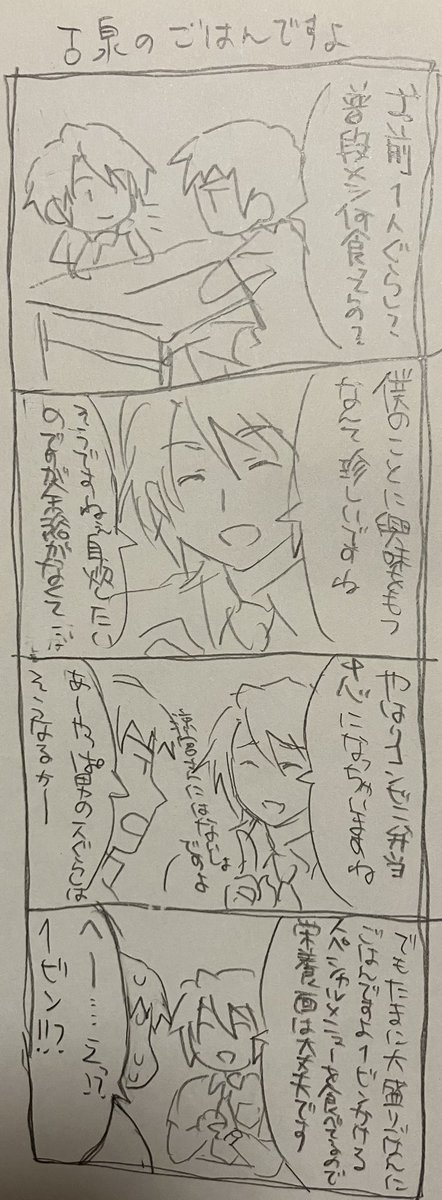 古泉のごはんですよ
お前1人ぐらしで
普段メシ何食べてるの?
僕のことに興味をもつ
なんて珍しいですね
そうですねぇ自炊したい
のですが余裕がなくて
やはりコンビニ弁当
中心になっちゃいますね
あーやっぱ男の1人ぐらしは
そうなるかー
でもたまに大盛りごはんに
ごはんですよ1ビンかける
スペシャルメニューを食べてるので
栄養面は大丈夫です
へー……えっ!?
1ビン!!?